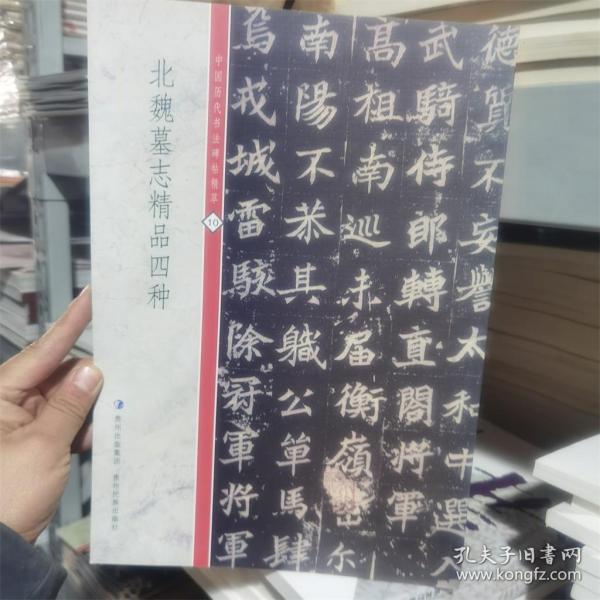 北魏墓志精品四种
中国历代书法碑帖精萃
10
贵州出版集团 贵州民族出版社
德質不妄譽太和中選入
武騎侍郎轉直閤將軍
高祖南巡未届衡嶺
南陽不恭其職公單馬肆
戎城雷駭除冠軍將軍
孔夫子旧书网
www.kongfz.com